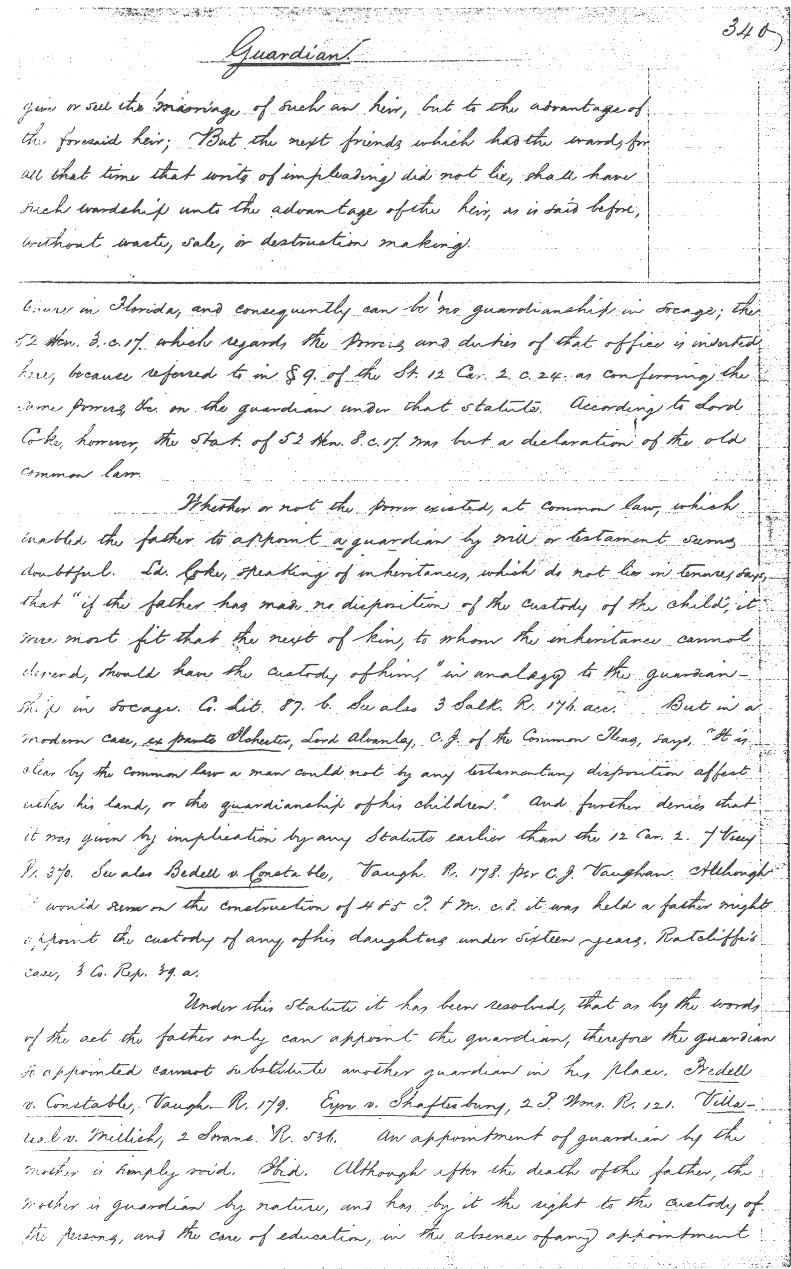 340
Guardian.
give or sell the marriage of such an heir, but to the advantage of
the foresaid heir; But the next friends which had the wards, for
all that time that writs of impleading did not lie, shall have
such wardship unto the advantage of the heir, as is said before,
without waste, sale, or destruction making.
tenures in Florida, and consequently can be no guardianship in socage; the
52 Hen. 3. c. 17. which regards the powers and duties of that office is inserted
here, because referred to in § 9. of the St. 12 Car. 2. c. 24. as conferring the
same powers, &c. on the guardian under that statute. According to Lord
Coke, however, the Stat. of 52 Hen. 3. c. 17. was but a declaration of the old
common law.
Whether or not the power existed, at common law, which
enabled the father to appoint a guardian by will or testament seems
doubtful. Ld. Coke, speaking of inheritances, which do not lie in tenures, says,
that "if the father has made no disposition of the custody of the child, it
were most fit that the next of kin, to whom the inheritance cannot
descend, should have the custody of him," in analogy to the guardian-
ship in socage. Co. Lit. 87. b. See also 3 Salk. R. 176. acc. But in a
modern case, ex parte Ilchester, Lord Alvanley, C. J. of the Common Pleas, says, "It is
clear by the common law a man could not by any testamentary disposition affect
either his land, or the guardianship of his children." And further denies that
it was given by implication by any Statute earlier than the 12 Car. 2. 7 Vesey
R. 370. See also Bedell v. Constable, Vaugh. R. 178. per C. J. Vaughan. Although
it would seem on the construction of 4 & 5 P. & M. c. 8. it was held a father might
appoint the custody of any of his daughters under sixteen years. Ratcliffe's
case, 3 Co. Rep. 39. a.
Under this Statute it has been resolved, that as by the words
of the act the father only can appoint the guardian, therefore the guardian
so appointed cannot substitute another guardian in his place. Bedell
v. Constable, Vaugh. R. 179. Eyre v. Shaftesbury, 2 P. Wms. R. 121. Villa-
real v. Mellish, 2 Swans. R. 536. An appointment of guardian by the
mother is simply void. Ibid. Although after the death of the father, the
mother is guardian by nature, and has by it the right to the custody of
the persons, and the care of education, in the absence of any appointment